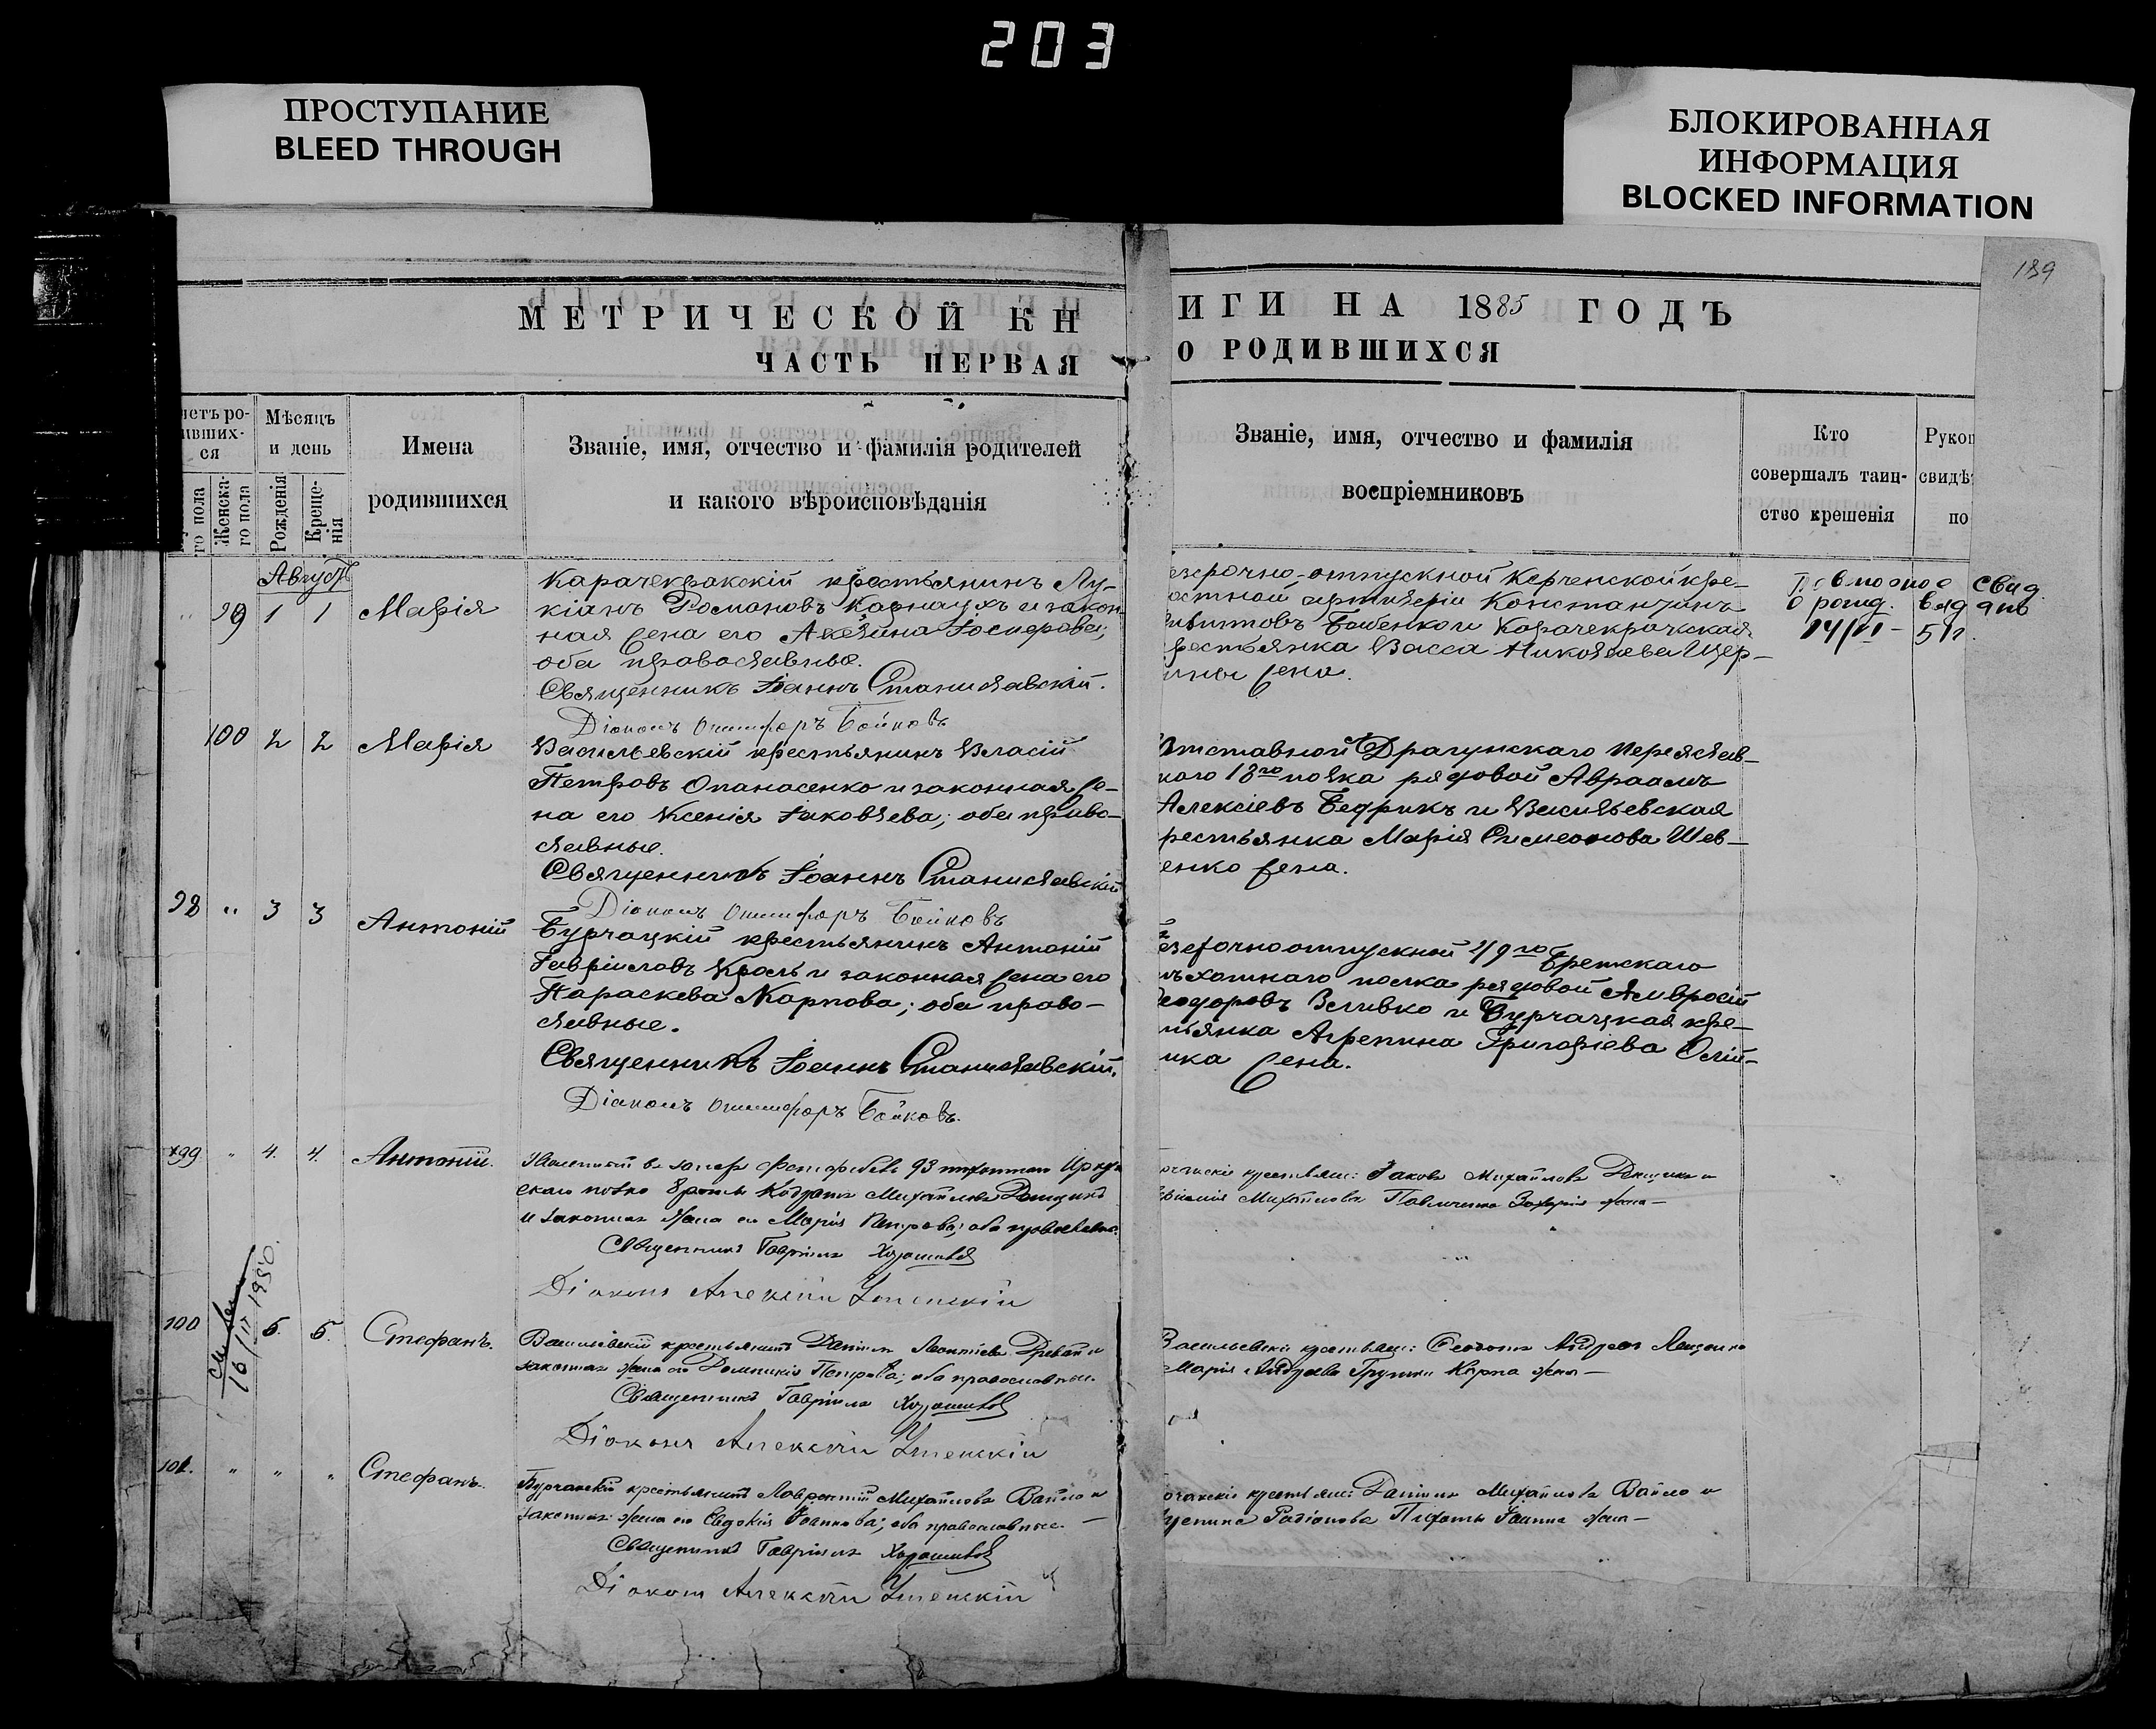 203
ПРОСТУПАНИЕ
BLEED THROUGH
БЛОКИРОВАННАЯ
ИНФОРМАЦИЯ
BLOCKED INFORMATION
189
МЕТРИЧЕСКОЙ КН
ИГИ НА 1885 ГОДЪ
ЧАСТЬ ПЕРВАЯ
О РОДИВШИХСЯ
четъ ро-
ивших-
ся
Мѣсяцъ
и день
Имена
родившихся
Званіе, имя, отчество и фамилія родителей
и какого вѣроисповѣданія
Званіе, имя, отчество и фамилія
воспріемниковъ
Кто
совершалъ таин-
ство крешенія
Рукоп
свидѣ
по
го пола
Женска-
го пола
Рожденія
Креще-
нія
Августъ
99 1 1 Марія
Карачекракскій крестьянинъ Лу-
кіанъ Романовъ Карнаухъ и закон
ная жена его Акелина
оба православные.
Священникъ Іоаннъ Станиславскій.
Діаконъ Онисифоръ Бойковъ
езсрочно-отпускной Керченской кре-
остной артилеріи Константинъ
и Карачекракская
рестьянка Васса Николаева Щер-
ины жена.
Повторное свид
о рожд. выдано
100 2 2 Марія
Васильевскій крестьянинъ Власій
Петровъ Опанасенко и законная же-
на его Ксенія Іаковлева; оба право-
славные.
Священникъ Іоаннъ Станиславскій
Діаконъ Онисифоръ Бойковъ
Отставной Драгунскаго Переяслав-
каго 18го полка рядовой Авраамъ
Алексіевъ Бедрикъ и Васильевская
рестьянка Марія Симеонова Шев-
енко жена.
98 " 3 3 Антоній
Бурчацкій крестьянинъ Антоній
Гавріиловъ Кроль и законная жена его
Параскева Карпова; оба право-
славные.
Священникъ Іоаннъ Станиславскій.
Діаконъ Онисифоръ Бойковъ.
езсрочноотпускной 119го Брестскаго
ѣхотнаго полка рядовой Амвросій
Ѳеодоровъ Вливко и Бурчацкая кре-
тьянка Агрепина Григоріева Олій-
ика жена.
99 " 4. 4. Антоній.
93 пѣхотнаго Ирку
скаго полка Кодратъ Михайловъ
и законная жена его Марія Петрова; оба православные.
Священникъ Гавріилъ
Діаконъ Алексій Успенскій
крестьяне: Іаковъ Михайловъ и
Михайлова Павличенко Захарія жена—
16/II 1950.
100 5. 5. Стефанъ.
Васильевскій крестьянинъ Даніилъ Леонтіевъ и
законная жена его Домникія Петрова; оба православные.
Священникъ Гавріилъ
Діаконъ Алексій Успенскій
Васильевскіе крестьяне: Ѳеодотъ Андреевъ
Марія Андреева Карпа жена—
101. " " " Стефанъ.
Бурчакскій крестьянинъ Лаврентій Михайловъ Вайло и
законная жена его Евдокія Іоаннова; оба православные.
Священникъ Гавріилъ
Діаконъ Алексій Успенскій
рчакскіе крестьяне: Даніилъ Михайловъ Вайло и
Родіонова Іоанна жена—